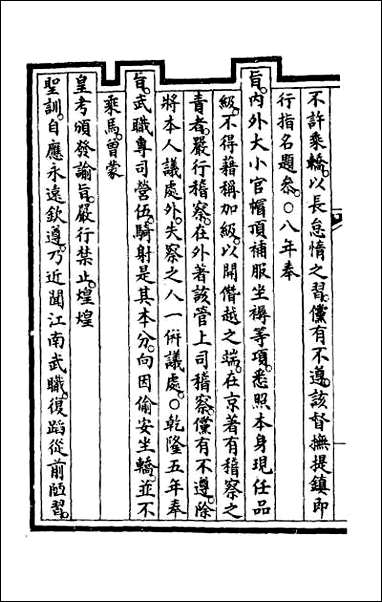 不許乘轎。以長怠惰之習。儻有不遵。該督撫提鎮即
行指名題參。○八年奉
旨。內外大小官帽頂補服坐褥等項。悉照本身現任品
級。不得藉稱加級。以開僭越之端。在京著有稽察之
責者。嚴行稽察。在外著該管上司稽察。儻有不遵。除
將本人議處外。失察之人一併議處。○乾隆五年奉
旨。武職專司營伍。騎射是其本分。向因偷安坐轎。並不
乘馬。曾蒙
皇考頒發諭旨。嚴行禁止。煌煌
聖訓。自應永遠欽遵。乃近聞江南武職。復蹈從前陋習。